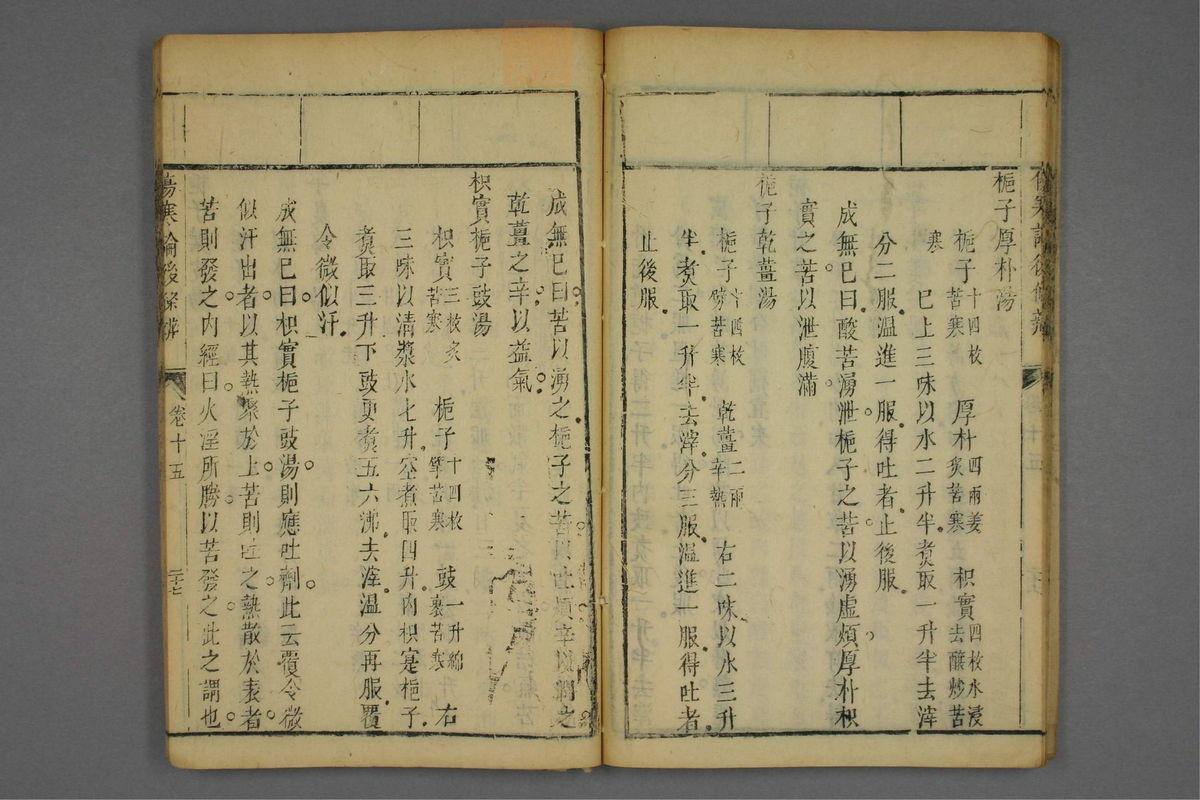 梔子厚朴湯
梔子十四枚苦寒 厚朴四兩姜炙苦寒 枳實四枚水浸去釀炒苦
寒
已上三味以水二升半煑取一升半去滓
分二服溫進一服得吐者止後服
成無已曰酸苦湧泄梔子之苦以湧虛煩厚朴枳
實之苦以泄腹滿
梔子乾薑湯
梔子十四枚劈苦寒 乾薑二兩辛熱 右二味以水三升
半煑取一升半去滓分三服溫進一服得吐者
止後服
成無已曰苦以湧之梔子之苦以吐煩辛以潤之
乾薑之辛以益氣
枳實梔子豉湯
枳實三枚炙苦寒 梔子十四枚擘苦寒 豉一升綿裹苦寒 右
三味以清漿水七升空煮取四升內枳寔梔子
煑取三升下豉更煑五六沸去滓溫分再服覆
令微似汗
成無已曰枳實梔子豉湯則應吐劑此云覆令微
似汗出者以其熱聚於上苦則吐之熱散於表者
苦則發之內經曰火淫所勝以苦發之此之謂也
傷寒論後條辨 卷十五 二十七